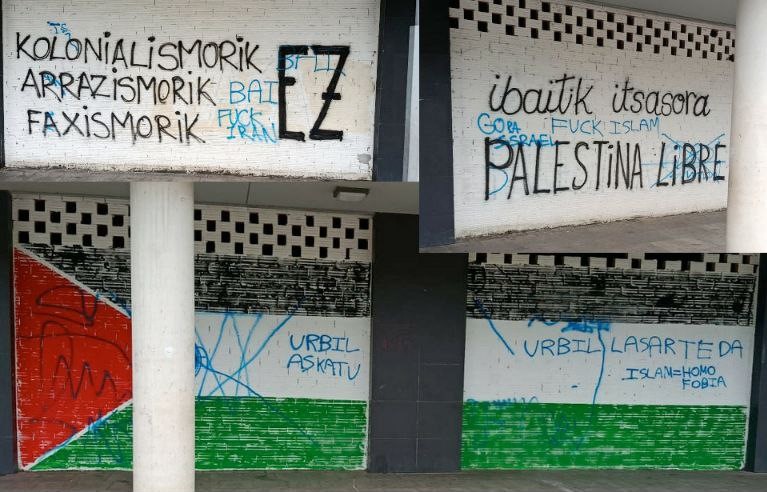 KOLONIALISMORIK
ARRAZISMORIK
FAXISMORIK
EZ
BAI
FUCK
IRAN
ibaitik itsasora
GORA
ISSRAEL
FUCK ISLAM
PALESTINA LIBRE
URBIL
ASKATU
URBIL LASARTE DA
ISLAN=HOMO
FOBIA